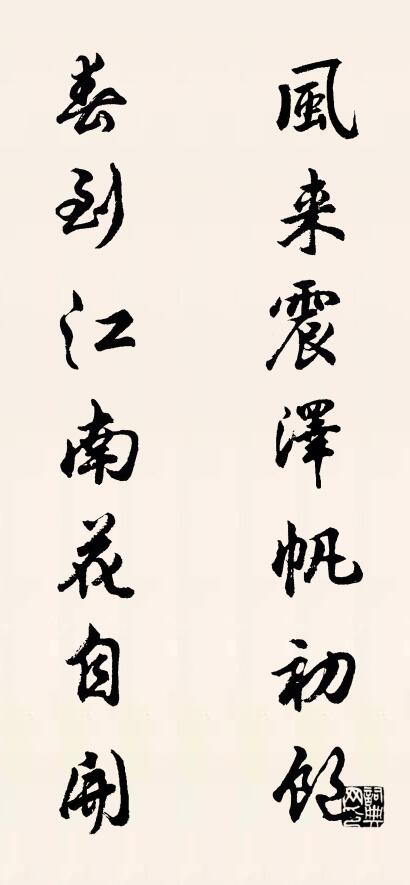 風来震澤帆初飽
春到江南花自開
詞典网